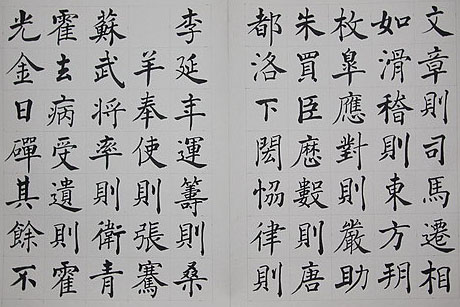 文章則司馬遷相
如滑稽則東方朔
枚皐應對則嚴助
朱買臣厯數則唐
都洛下閎恊律則
李延年運籌則桑
羊奉使則張騫
蘇武將率則衛青
霍去病受遺則霍
光金日磾其餘不